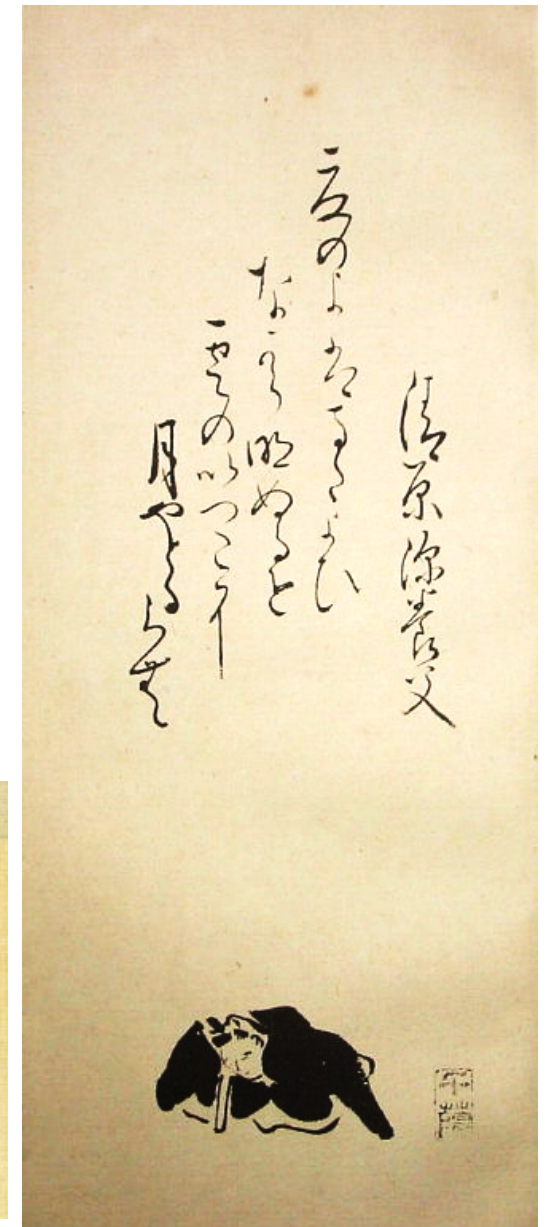 清原深養父
夏のよはまたよひ
なから明ぬるを
雲のいつこに
月やとるらむ